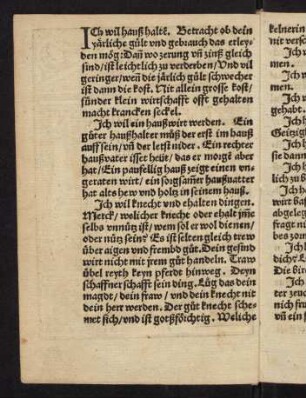 ICh wil hauß haltē. Betracht ob dein
järliche gült vnd gebrauch das erley-
den mög: Dañ wo zerung vñ zinß gleich
sind/ ist leichtlich zu verderben/ Vnd vil
geringer/ weñ die järlich gült schwecher
ist dann die kost. Nit allein grosse kost/
sunder klein wirtschafft offt gehalten
macht krancken seckel.
Ich wil ein haußwirt werden. Ein
güter haußhalter müß der erst im hauß
auff sein/ vñ der letst nider. Ein rechter
haußvater isset heüt/ das er morgē aber
hat/ Ein paufellig hauß zeigt einen vn
geraten wirt/ ein sorgsamer haußuatter
hat altes hew vnd holtz in seinem hauß.
Ich wil knecht vnd ehalten dingen.
Merck/ wölicher knecht oder ehalt jm̃e
selbs vnnütz ist/ wem sol er wol dienen/
oder nütz sein? Es ist selten gleich trew
über aigen vnd frembd güt. Dein gesind
wirt nicht mit jrem güt handeln. Traw
übel reyth keyn pferde hinweg. Deyn
schaffner schafft sein ding. Lüg das dein
magdt/ dein fraw/ vnd dein knecht nit
dein herr werden. Der güt knecht sche-
met sich/ vnd ist gotßförchtig. Weliche
kelnerin
nit versc
Ich
men.
Ich
men.
Ich
gehabt.
Ich
Geitzig
Ich
sie dann
Ich
lich zu b
Ich
wirt baß
abgelau
fragt ni
bes zom
Ich
dich? L
Die bir
Ich
ter zeuc
nicht an
vñ ein s